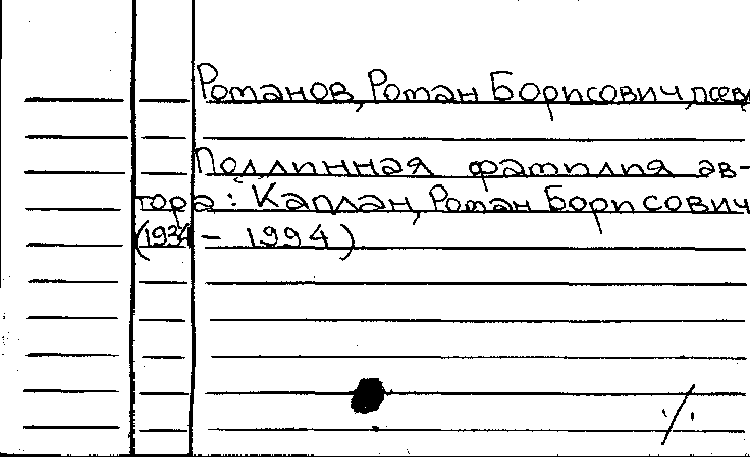 Романов, Роман Борисович, псевд
Подлинная фамилия ав-
тора: Каплан, Роман Борисович
(1934 – 1994)